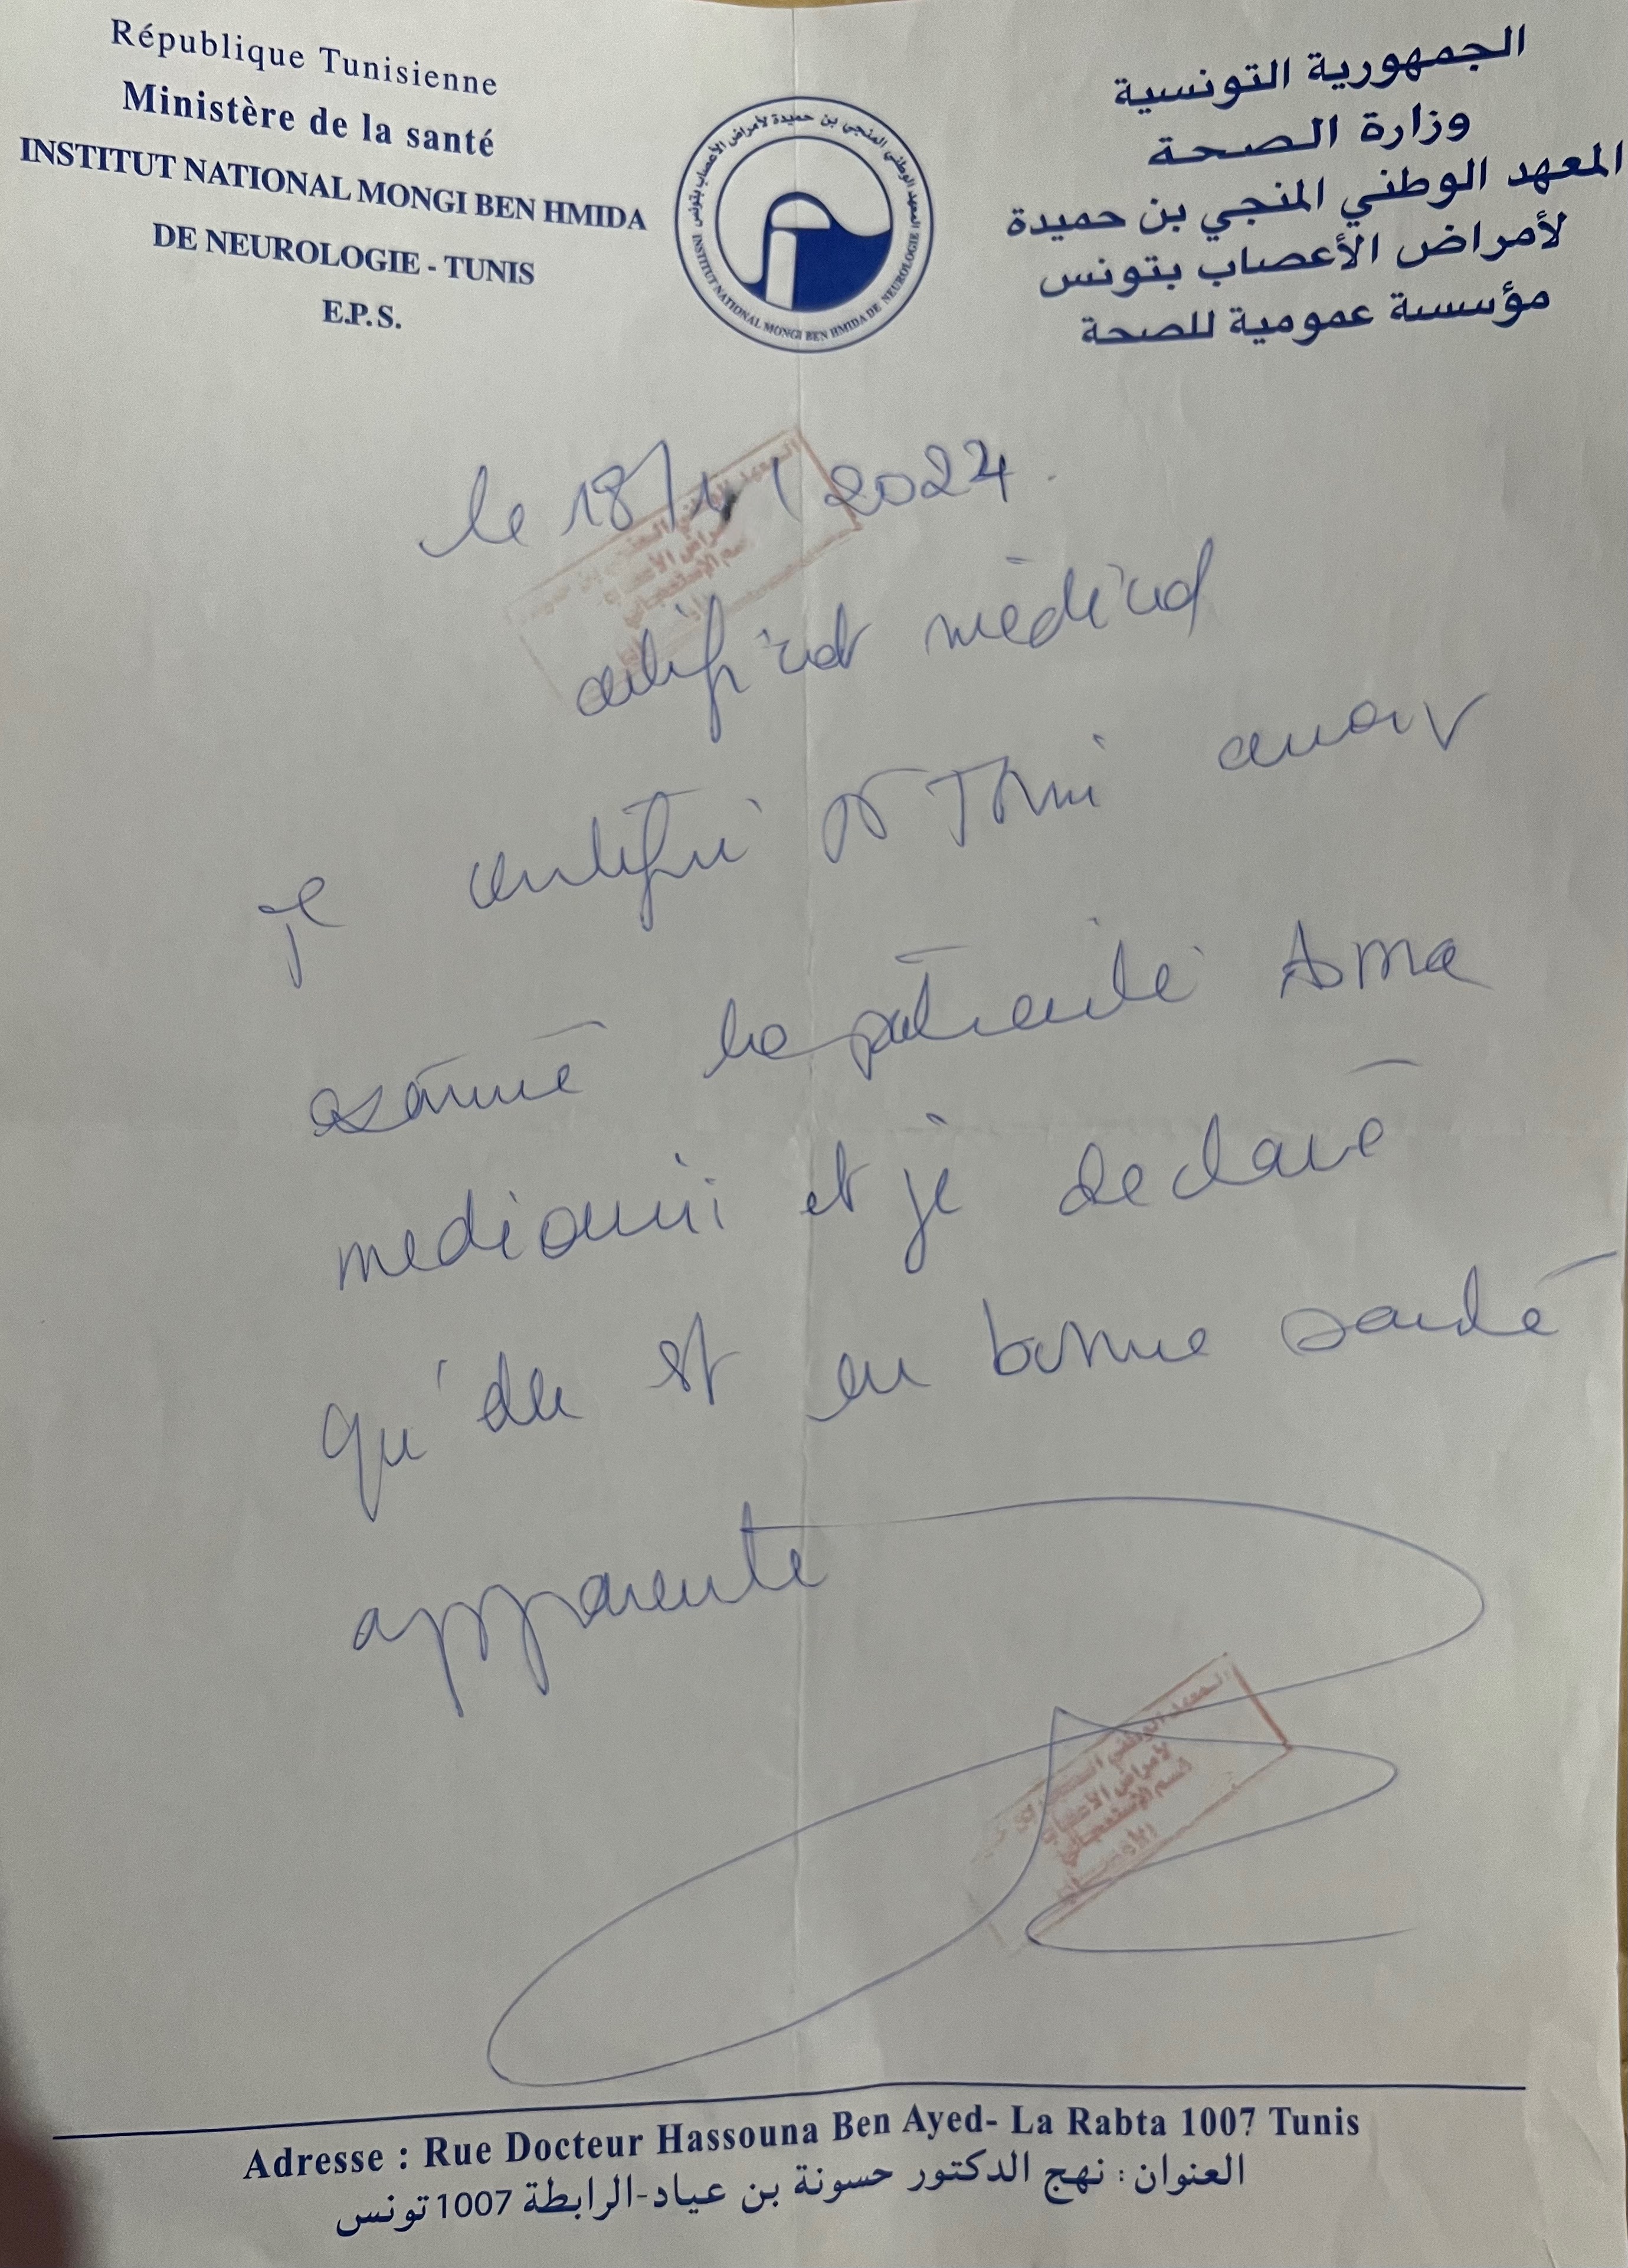 République Tunisienne
Ministère de la santé
INSTITUT NATIONAL MONGI BEN HMIDA
DE NEUROLOGIE - TUNIS
E.P.S.
المعهد الوطني المنجي بن حميدة لأمراض الأعصاب بتونس
INSTITUT NATIONAL MONGI BEN HMIDA DE NEUROLOGIE
الجمهورية التونسية
وزارة الصحة
المعهد الوطني المنجي بن حميدة
لأمراض الأعصاب بتونس
مؤسسة عمومية للصحة
le 18/11/2024
certificat médical
Je certifie Dr avoir
examiné la patiente Asma
mediouni et je declare
qu'elle est en bonne santé
apparente
المعهد الوطني
لأمراض الأعصاب
قسم الإستعجالي
Adresse : Rue Docteur Hassouna Ben Ayed- La Rabta 1007 Tunis
العنوان : نهج الدكتور حسونة بن عياد-الرابطة 1007 تونس